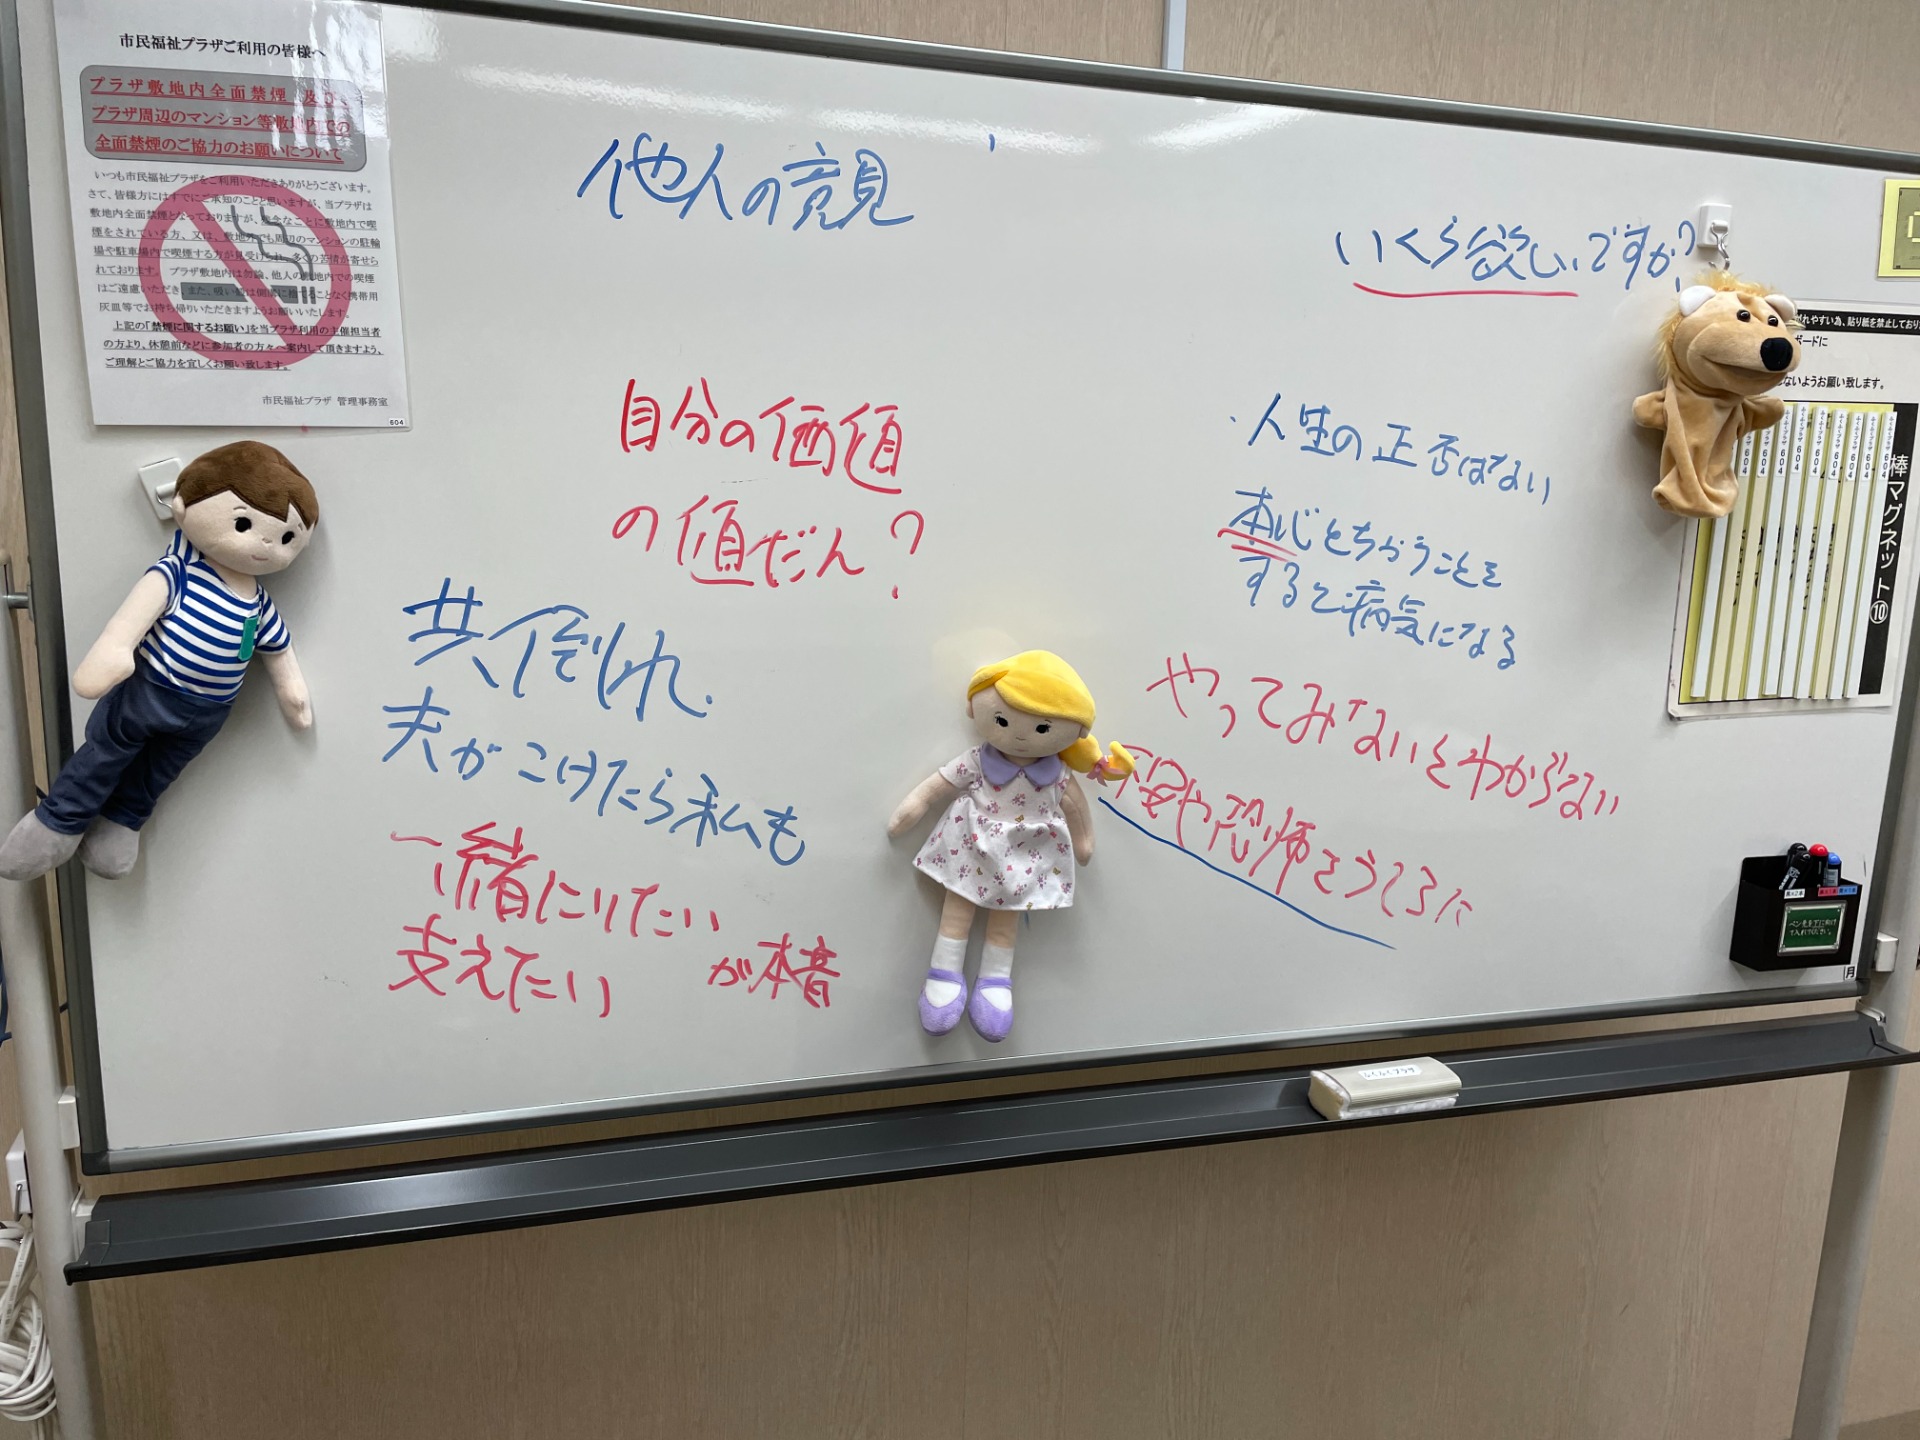 市民福祉プラザご利用の皆様へ
プラザ敷地内全面禁煙 及び
プラザ周辺のマンション等敷地内での
全面禁煙のご協力のお願いについて
いつも市民福祉プラザをご利用いただきありがとうございます。
さて、皆様方にはすでにご承知のことと思いますが、当プラザは
敷地内全面禁煙となっておりますが、残念なことに敷地内で喫
煙をされている方、又は、敷地外でも周辺のマンションの駐輪
場や駐車場内で喫煙する方が見受けられ、多くの苦情が寄せら
れております。 プラザ敷地内は勿論、他人の敷地内での喫煙
はご遠慮いただき、また、吸い殻は側溝に捨てることなく携帯用
灰皿等でお持ち帰りいただきますようお願いいたします。
上記の「禁煙に関するお願い」を当プラザ利用の主催担当者
の方より、休憩前などに参加者の方々へ案内して頂きますよう、
ご理解とご協力を宜しくお願い致します。
市民福祉プラザ 管理事務室
604
他人の意見
いくら欲しいですか?
自分の価値
の値だん?
共倒れ
夫がこけたら私も
一緒にいたい
支えたい が本音
・人生の正否はない
本心とちがうことを
すると病気になる
やってみないとわからない
不安や恐怖をうしろに
れやすい為、貼り紙を禁止しており
ボードに
ないようお願い致します。
棒マグネット⑩
ふくふくプラザ 604
ペン先を下に向け
て入れて下さい。
月
ふくふくプラザ